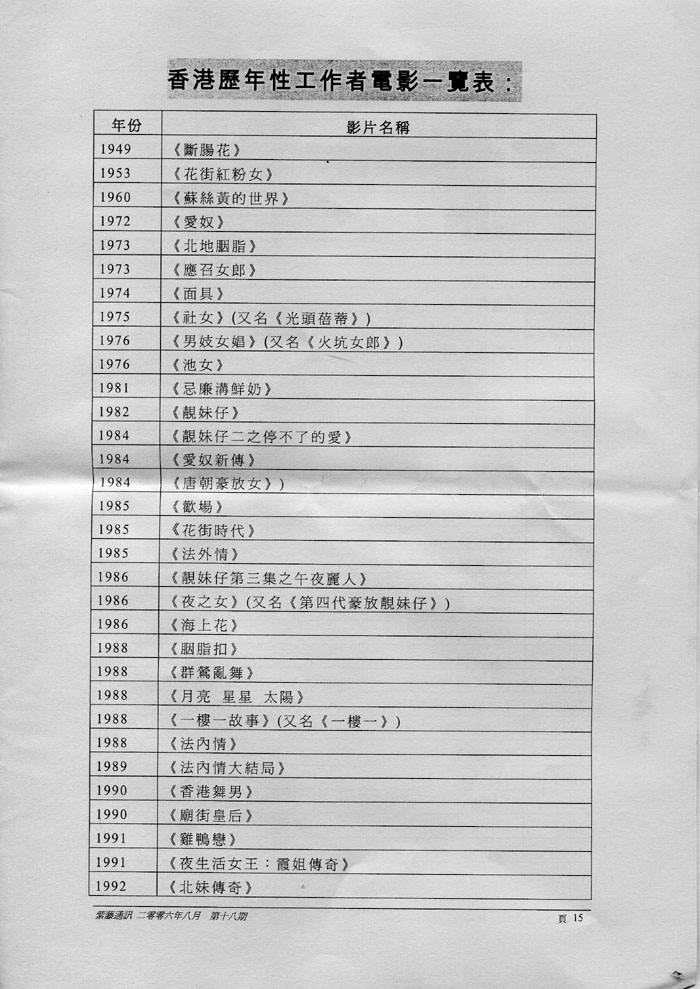 香港歷年性工作者電影一覽表：
年份 影片名稱
1949 《斷腸花》
1953 《花街紅粉女》
1960 《蘇絲黃的世界》
1972 《愛奴》
1973 《北地胭脂》
1973 《應召女郎》
1974 《面具》
1975 《社女》(又名《光頭蓓蒂》)
1976 《男妓女娼》(又名《火坑女郎》)
1976 《池女》
1981 《忌廉溝鮮奶》
1982 《靚妹仔》
1984 《靚妹仔二之停不了的愛》
1984 《愛奴新傳》
1984 《唐朝豪放女》)
1985 《歡場》
1985 《花街時代》
1985 《法外情》
1986 《靚妹仔第三集之午夜麗人》
1986 《夜之女》(又名《第四代豪放靚妹仔》)
1986 《海上花》
1988 《胭脂扣》
1988 《群鶯亂舞》
1988 《月亮 星星 太陽》
1988 《一樓一故事》(又名《一樓一》)
1988 《法內情》
1989 《法內情大結局》
1990 《香港舞男》
1990 《廟街皇后》
1991 《雞鴨戀》
1991 《夜生活女王：霞姐傳奇》
1992 《北妹傳奇》
紫藤通訊 二零零六年八月 第十八期 頁 15